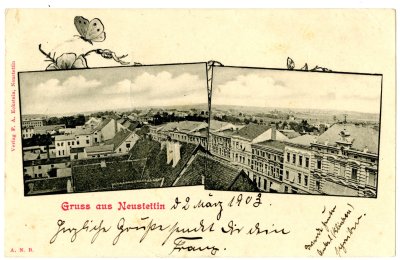 Verlag F. A. Eckstein, Neustettin
Gruss aus Neustettin
d 2 März 1903
Herzliche Grüße sendet dir dein
Franz.
A. N. B.